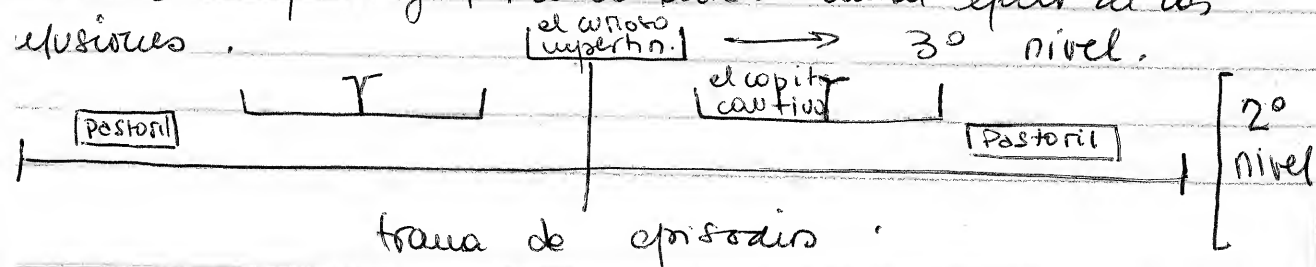 de los
el curioso
impertin. → 3º nivel.
el capit.
cautivo
Pastoril
Pastoril
2º
nivel
trama de episodios.